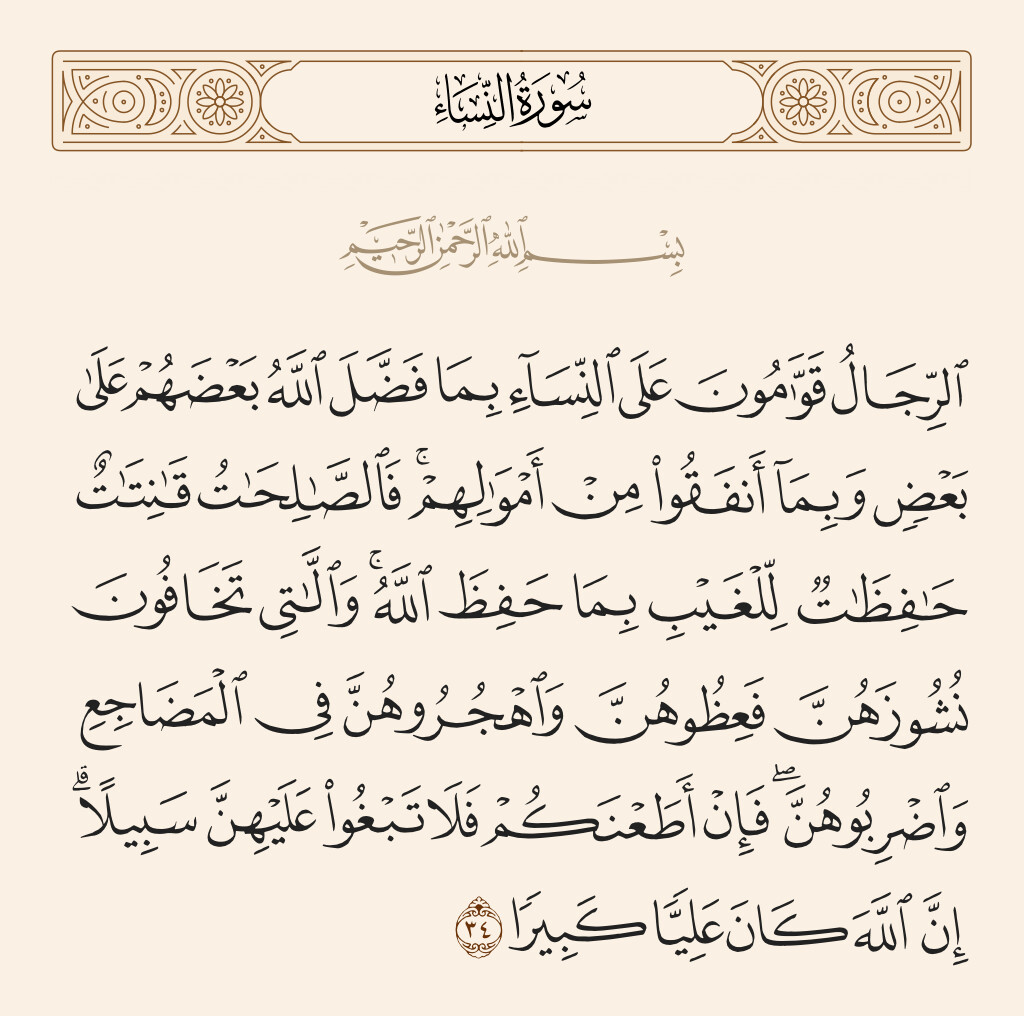 سُورَةُ النِّسَاءِ
بِسْمِ ٱللَّهِ ٱلرَّحْمَٰنِ ٱلرَّحِيمِ
ٱلرِّجَالُ قَوَّٰمُونَ عَلَى ٱلنِّسَآءِ بِمَا فَضَّلَ ٱللَّهُ بَعْضَهُمْ عَلَىٰ
بَعْضٍ وَبِمَآ أَنفَقُوا۟ مِنْ أَمْوَٰلِهِمْ ۚ فَٱلصَّٰلِحَٰتُ قَٰنِتَٰتٌ
حَٰفِظَٰتٌ لِّلْغَيْبِ بِمَا حَفِظَ ٱللَّهُ ۚ وَٱلَّٰتِى تَخَافُونَ
نُشُوزَهُنَّ فَعِظُوهُنَّ وَٱهْجُرُوهُنَّ فِى ٱلْمَضَاجِعِ
وَٱضْرِبُوهُنَّ ۖ فَإِنْ أَطَعْنَكُمْ فَلَا تَبْغُوا۟ عَلَيْهِنَّ سَبِيلًا ۗ
إِنَّ ٱللَّهَ كَانَ عَلِيًّا كَبِيرًا ٣٤